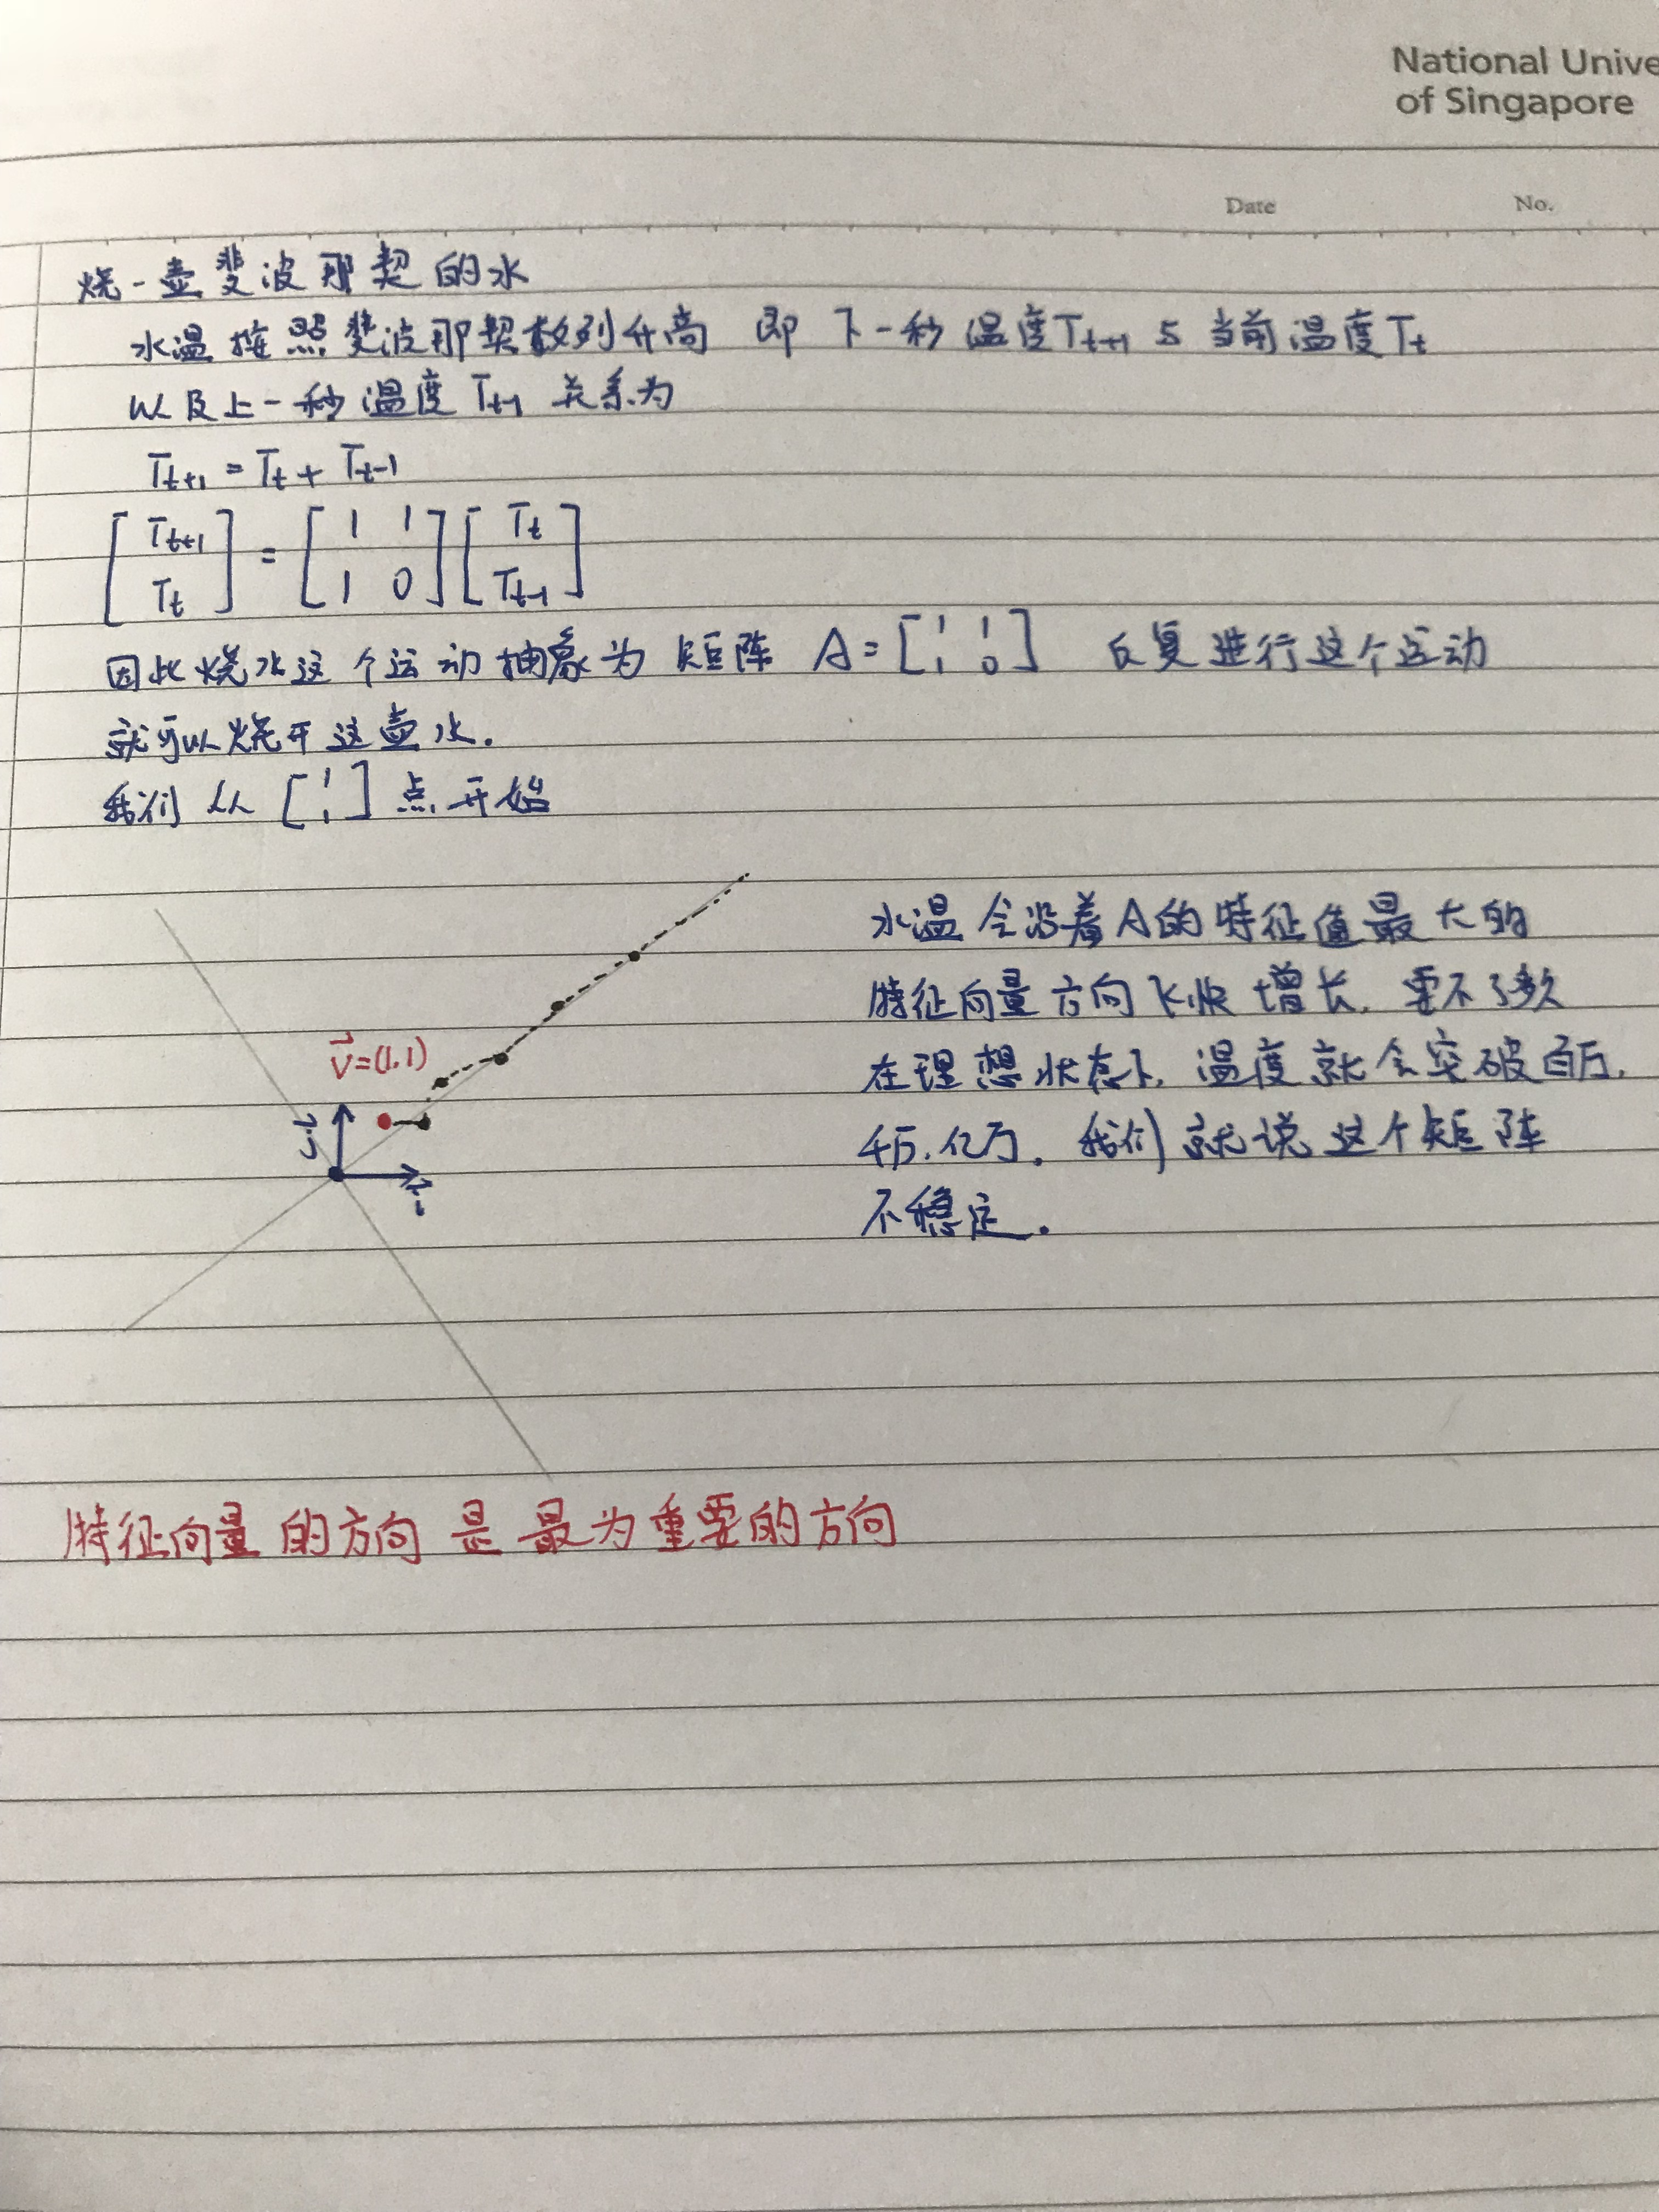 National Unive
of Singapore
Date No.
烧一壶斐波那契的水
水温按照斐波那契数列升高 即 下一秒温度T_{t+1}与当前温度T_t
以及上一秒温度T_{t-1}关系为
T_{t+1} = T_t + T_{t-1}
[T_{t+1} T_t] = [1 1 1 0] [T_t T_{t-1}]
因此烧水这个运动抽象为矩阵 A=[1 1 1 0] 反复进行这个运动
就可以烧开这壶水.
我们从[1 1]点开始
水温会沿着A的特征值最大的
特征向量方向飞快增长. 要不了多久
在理想状态下, 温度就会突破百万,
千万.亿万. 我们就说这个矩阵
不稳定.
v=(1,1)
j
i
特征向量的方向是最为重要的方向